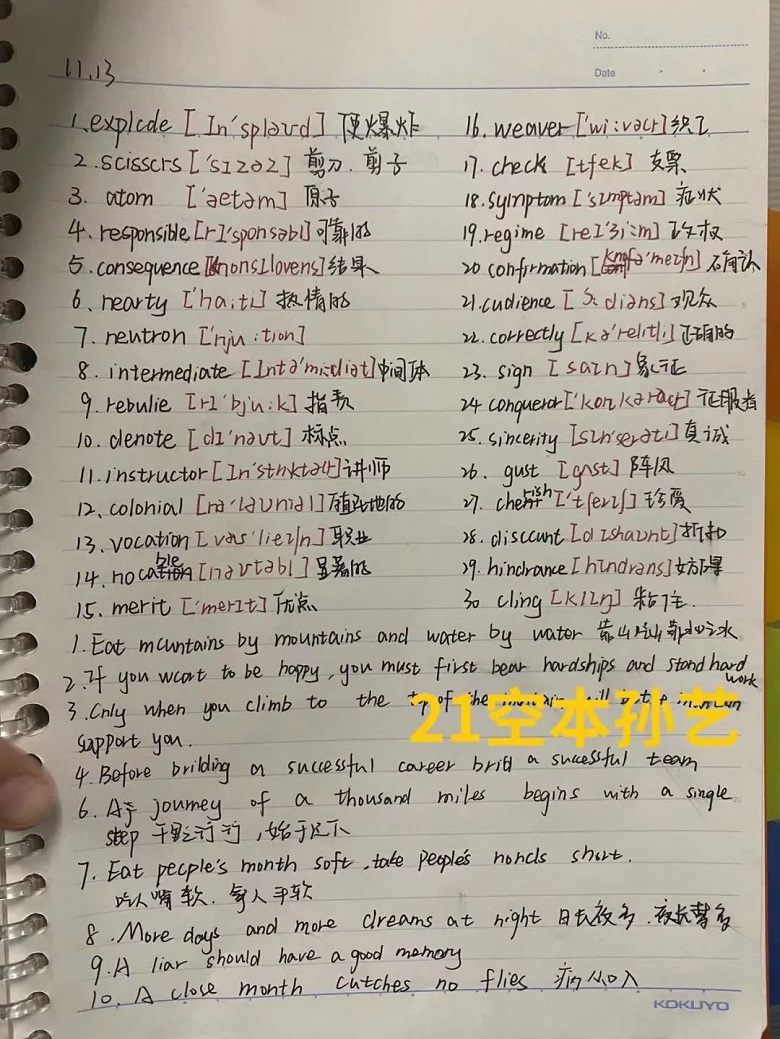 No.
Date
11.13
1.explode [In'spləʊd] 使爆炸
2.scisscrs ['sɪzəz] 剪刀.剪子
3. atom ['aetəm] 原子
4.responsible[rɪ'sponsəbl]可靠的
5.consequence 结果
6.hearty ['ha:ti] 热情的
7.neutron ['nju:tion]
8.intermediate [Intə'mi:diət]中间体
9.rebulie [rɪ'bju:k] 指责
10.denote [dɪ'nəvt] 标点
11.instructor [In'stnktər]讲师
12.colonial [nə'ləunial]殖民地的
13.vocation 职业
14.nocable [nəvtəbl] 显著的
15.merit ['merɪt] 优点
16.weaver['wi:vər]织工
17.check [tfek] 支票
18.symptom ['sɪmptəm] 症状
19.regime [reɪ'ʒi:m] 政权
20 confirmation 确认
21.cudience 观众
22.correctly [kə'relitli]正确的
23.sign [saɪn]象征
24 conqueror 征服者
25.sincerity [sɪn'serəti]真诚
26.gust [gʌst] 阵风
27.cherish ['tʃerɪʃ] 珍爱
28.disccunt 折扣
29.hindrance [hɪndrəns]妨碍
30 cling [klɪŋ] 粘住.
1.Eat mcuntains by mountains and water by water 靠山吃山靠水吃水
2.If you wcat to be happy, you must first bear hardships and stand hard work
3.Cnly when you climb to the top of the mountain will
support you.
4.Before brilding a successful career brild a successful team
6.A journey of a thousand miles begins with a single
step 千里之行,始于足下
7.Eat pecple's month soft, tate people's honds short.
吃人嘴软.拿人手软
8.More days and more dreams at night 日长夜多.夜长梦多
9.A liar should have a good memory
10.A close month cutches no flies 病从口入
21空本孙艺
KOKUYO